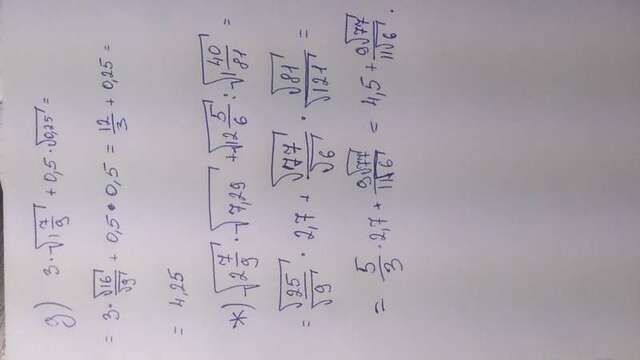 з) 3·√1 7/9 + 0,5·√0,25 =
= 3·√16/√9 + 0,5·0,5 = 12/3 + 0,25 =
= 4,25
ж) √2 7/9 · √7,29 + √12 5/6 : √1 40/81 =
= √25/√9 · 2,7 + √77/√6 · √81/√121 =
= 5/3 · 2,7 + 9√77/11√6 = 4,5 + 9√77/11√6 .